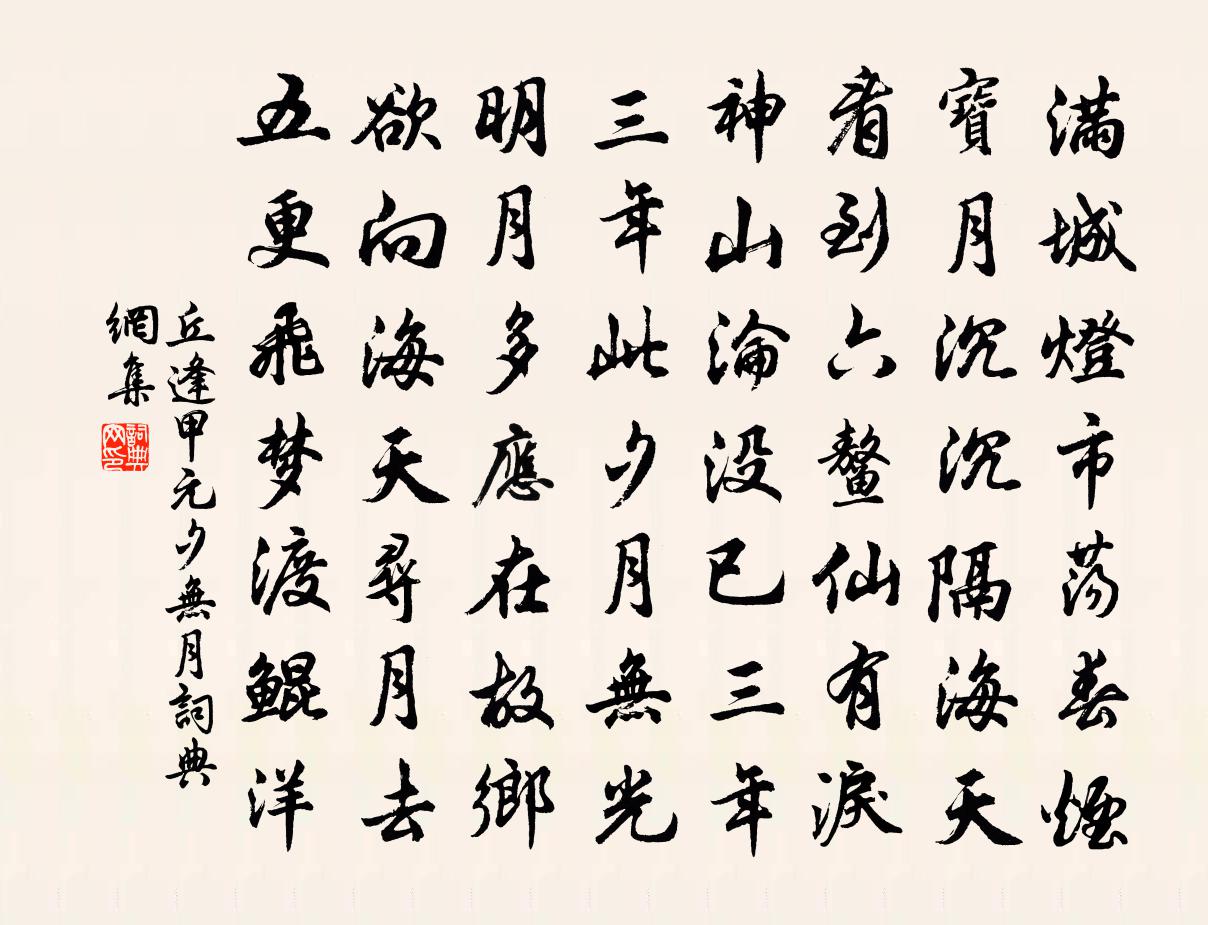 滿城燈市蕩春煙
寶月沉沉隔海天
看到六鰲仙有淚
神山淪没已三年
三年此夕月無光
明月多應在故鄉
欲向海天尋月去
五更飛梦渡鲲洋
丘逢甲元夕無月詞典
網集
詞典
网印